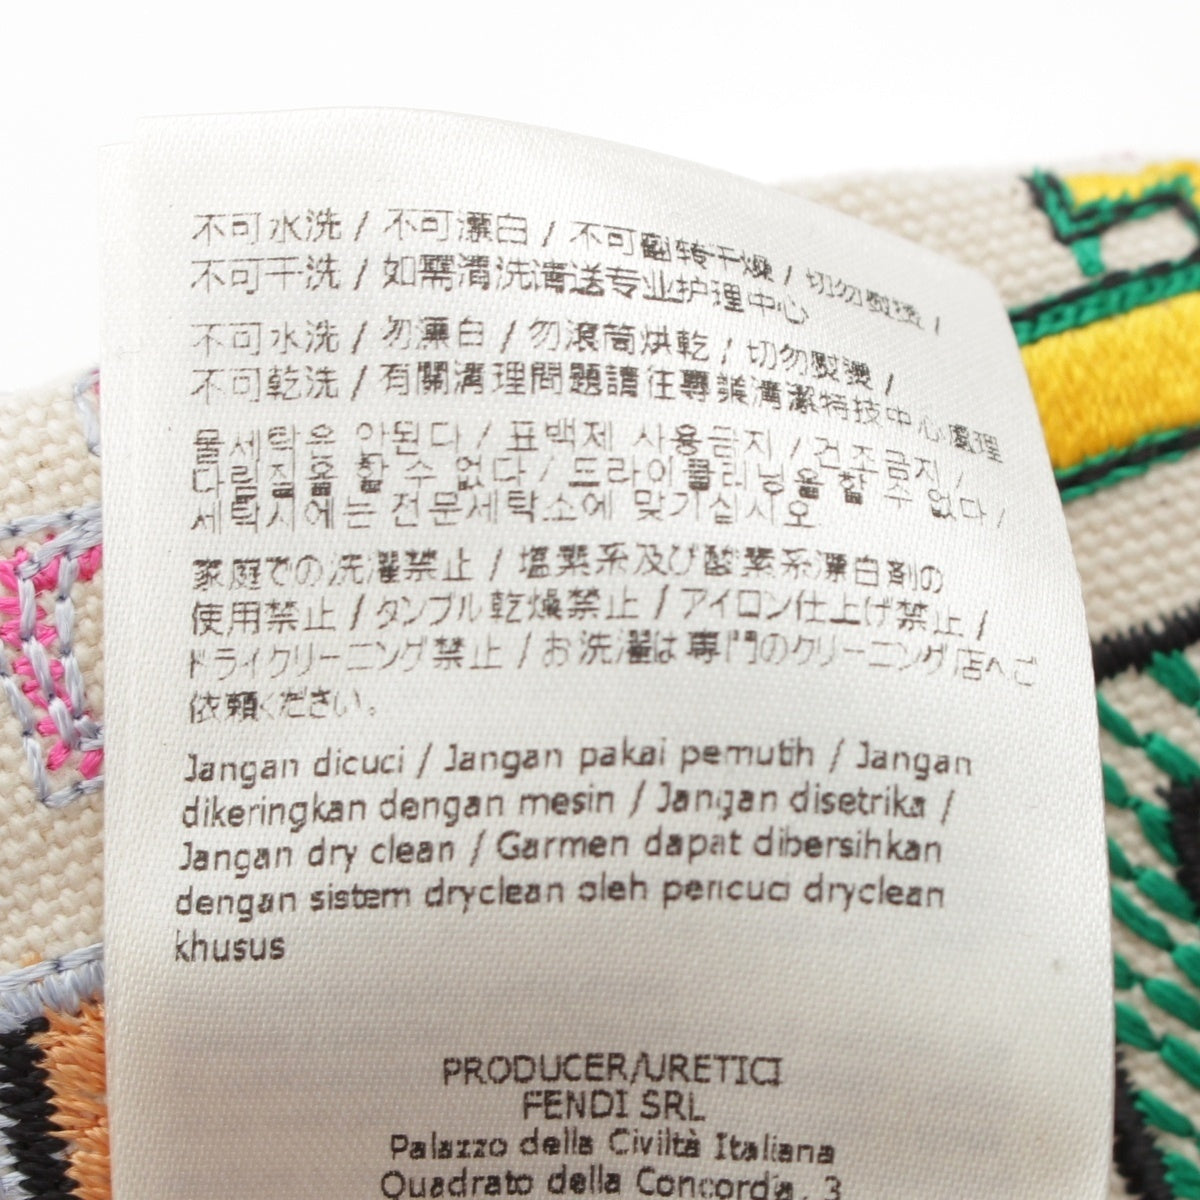 不可水洗 / 不可漂白 / 不可翻转干燥 / 切勿熨烫 /
不可干洗 / 如需清洗请送专业护理中心
不可水洗 / 勿漂白 / 勿滾筒烘乾 / 切勿熨燙 /
不可乾洗 / 有關清理問題請往專業清潔特技中心處理
물세탁은 안된다 / 표백제 사용금지 / 건조금지 /
다림질을 할 수 없다 / 드라이클리닝을 할 수 없다 /
세탁시에는 전문세탁소에 맞기십시오
家庭での洗濯禁止 / 塩素系及び酸素系漂白剤の
使用禁止 / タンブル乾燥禁止 / アイロン仕上げ禁止 /
ドライクリーニング禁止 / お洗濯は専門のクリーニング店へご
依頼ください。
Jangan dicuci / Jangan pakai pemutih / Jangan
dikeringkan dengan mesin / Jangan disetrika /
Jangan dry clean / Garmen dapat dibersihkan
dengan sistem dryclean oleh pencuci dryclean
khusus
PRODUCER/URETICI
FENDI SRL
Palazzo della Civiltà Italiana
Quadrato della Concordia, 3